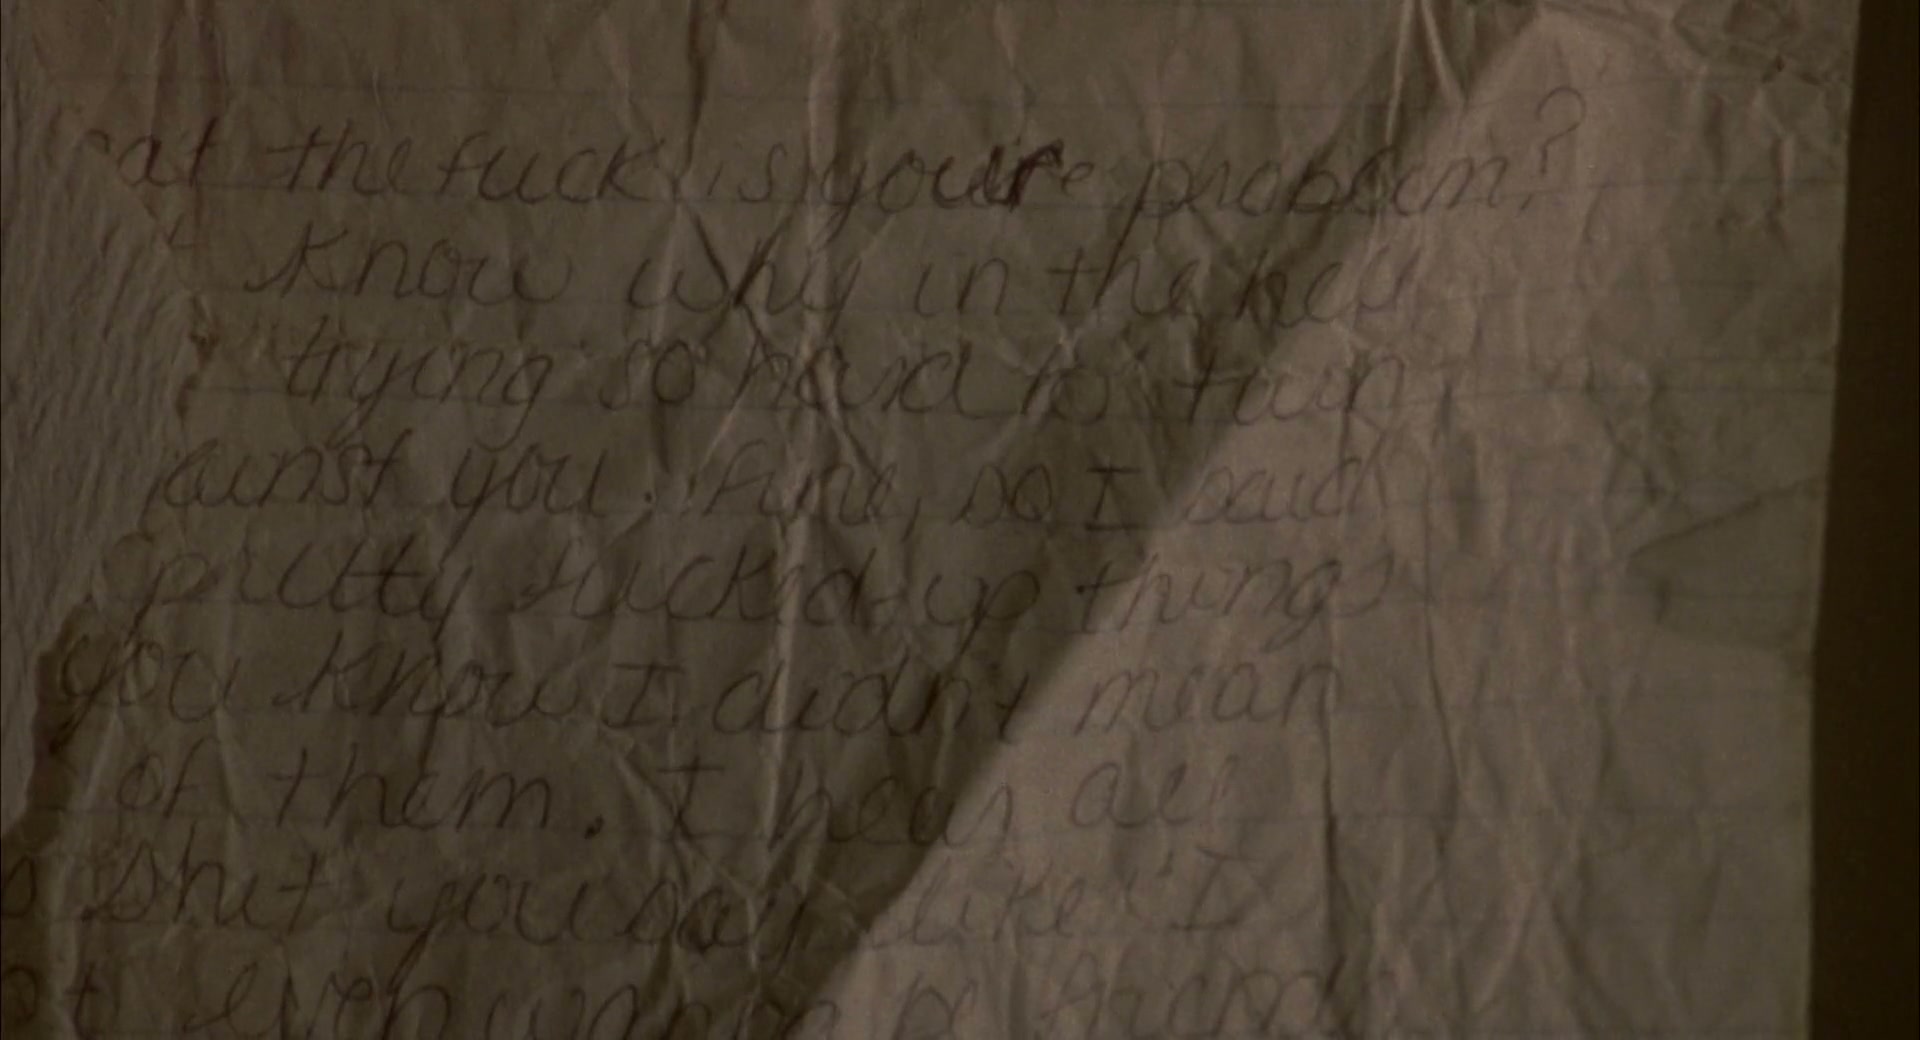 at the fuck is you're problem?
know why in the hell
trying so hard to turn
ainst you. fine, so I said
pretty fucked up things
you know I didnt mean
of them. I hear all
s shit you say like I
t even wanna be friends